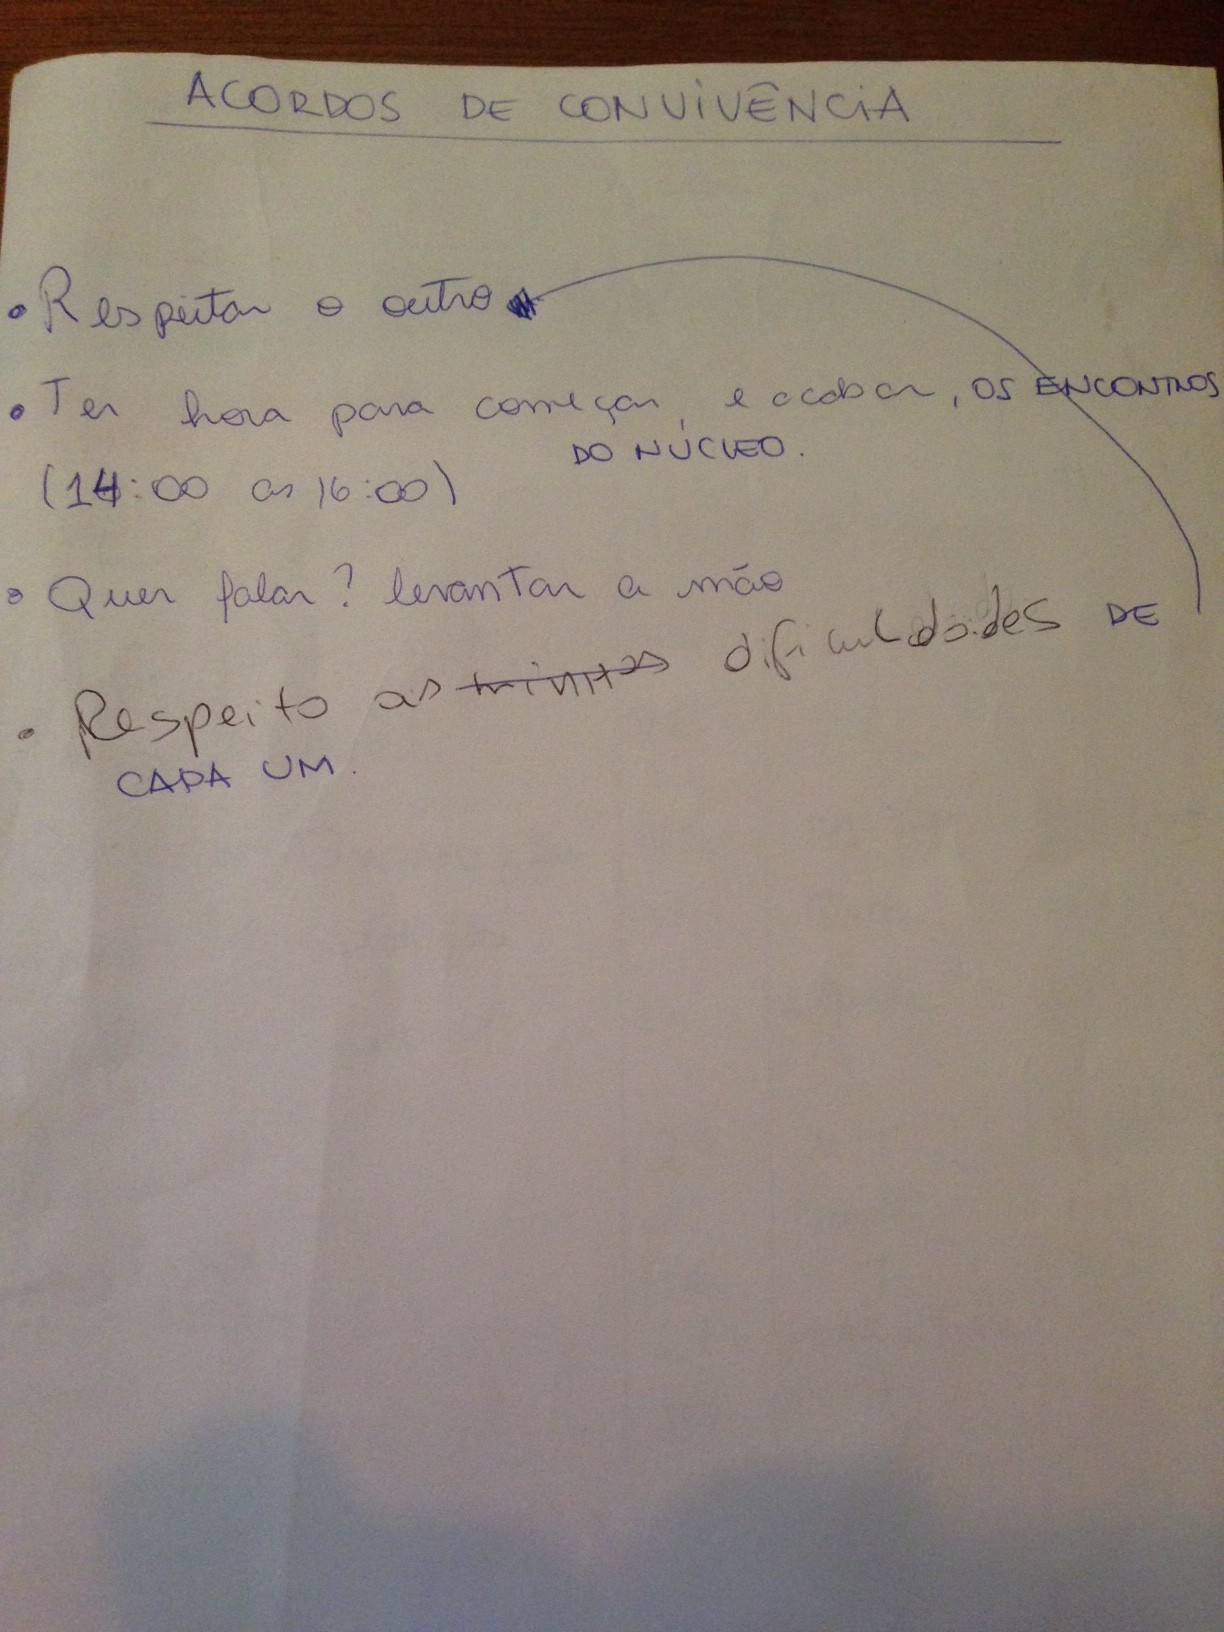 ACORDOS DE CONVIVÊNCIA
• Respeitar o outro
• Ter hora para começar, e acabar, OS ENCONTROS
DO NÚCLEO.
(14:00 as 16:00)
• Quer falar? levantar a mão
• Respeito as dificuldades DE
CADA UM.